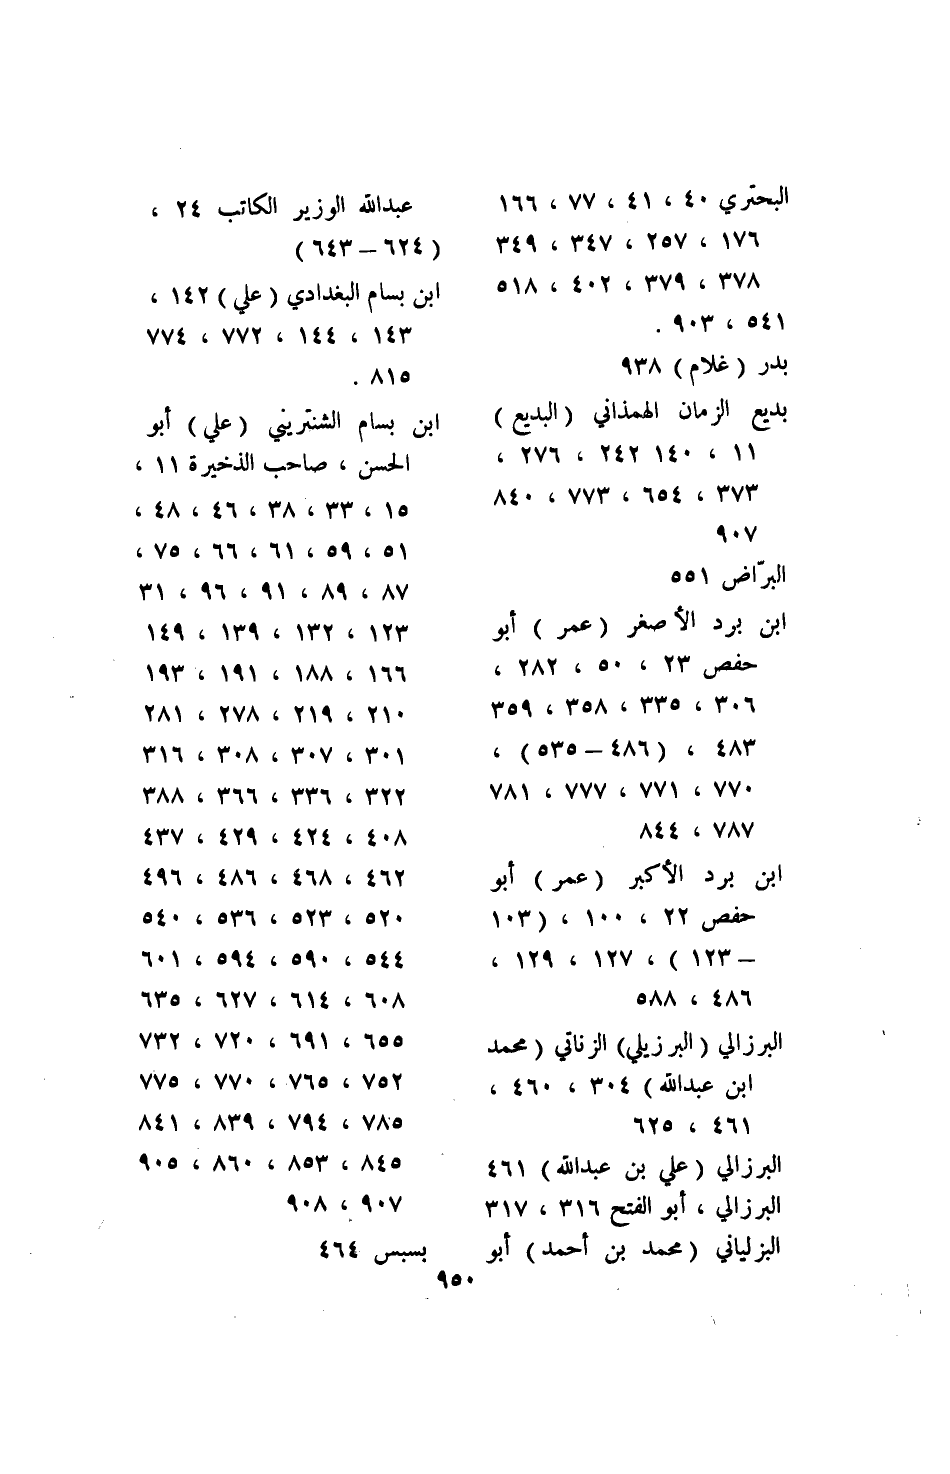 البحتري ٤٠ ، ٤١ ، ٧٧ ، ١٦٦
١٧٦ ، ٢٥٧ ، ٣٤٧ ، ٣٤٩
٣٧٨ ، ٣٧٩ ، ٤٠٢ ، ٥١٨
٥٤١ ، ٩٠٣ .
بدر ( غلام ) ٩٣٨
بديع الزمان الهمذاني ( البديع )
١١ ، ١٤٠ ٢٤٢ ، ٢٧٦ ،
٣٧٣ ، ٦٥٤ ، ٧٧٣ ، ٨٤٠
٩٠٧
البرّاض ٥٥١
ابن برد الأصغر ( عمر ) أبو
حفص ٢٣ ، ٥٠ ، ٢٨٢ ،
٣٠٦ ، ٣٣٥ ، ٣٥٨ ، ٣٥٩
٤٨٣ ، ( ٤٨٦ – ٥٣٥ ) ،
٧٧٠ ، ٧٧١ ، ٧٧٧ ، ٧٨١
٧٨٧ ، ٨٤٤
ابن برد الأكبر ( عمر ) أبو
حفص ٢٢ ، ١٠٠ ، ( ١٠٣
– ١٢٣ ) ، ١٢٧ ، ١٢٩ ،
٤٨٦ ، ٥٨٨
البرزالي ( البرزيلي ) الزناتي ( محمد
ابن عبدالله ) ٣٠٤ ، ٤٦٠ ،
٤٦١ ، ٦٢٥
البرزالي ( علي بن عبدالله ) ٤٦١
البرزالي ، أبو الفتح ٣١٦ ، ٣١٧
البزلياني ( محمد بن أحمد ) أبو
عبدالله الوزير الكاتب ٢٤ ،
( ٦٢٤ – ٦٤٣ )
ابن بسام البغدادي ( علي ) ١٤٢ ،
١٤٣ ، ١٤٤ ، ٧٧٢ ، ٧٧٤
٨١٥ .
ابن بسام الشنتريني ( علي ) أبو
الحسن ، صاحب الذخيرة ١١ ،
١٥ ، ٣٣ ، ٣٨ ، ٤٦ ، ٤٨ ،
٥١ ، ٥٩ ، ٦١ ، ٦٦ ، ٧٥ ،
٨٧ ، ٨٩ ، ٩١ ، ٩٦ ، ٣١
١٢٣ ، ١٣٢ ، ١٣٩ ، ١٤٩
١٦٦ ، ١٨٨ ، ١٩١ ، ١٩٣
٢١٠ ، ٢١٩ ، ٢٧٨ ، ٢٨١
٣٠١ ، ٣٠٧ ، ٣٠٨ ، ٣١٦
٣٢٢ ، ٣٣٦ ، ٣٦٦ ، ٣٨٨
٤٠٨ ، ٤٢٤ ، ٤٢٩ ، ٤٣٧
٤٦٢ ، ٤٦٨ ، ٤٨٦ ، ٤٩٦
٥٢٠ ، ٥٢٣ ، ٥٣٦ ، ٥٤٠
٥٤٤ ، ٥٩٠ ، ٥٩٤ ، ٦٠١
٦٠٨ ، ٦١٤ ، ٦٢٧ ، ٦٣٥
٦٥٥ ، ٦٩١ ، ٧٢٠ ، ٧٣٢
٧٥٢ ، ٧٦٥ ، ٧٧٠ ، ٧٧٥
٧٨٥ ، ٧٩٤ ، ٨٣٩ ، ٨٤١
٨٤٥ ، ٨٥٣ ، ٨٦٠ ، ٩٠٥
٩٠٧ ، ٩٠٨
بسبس ٤٦٤
٩٥٠